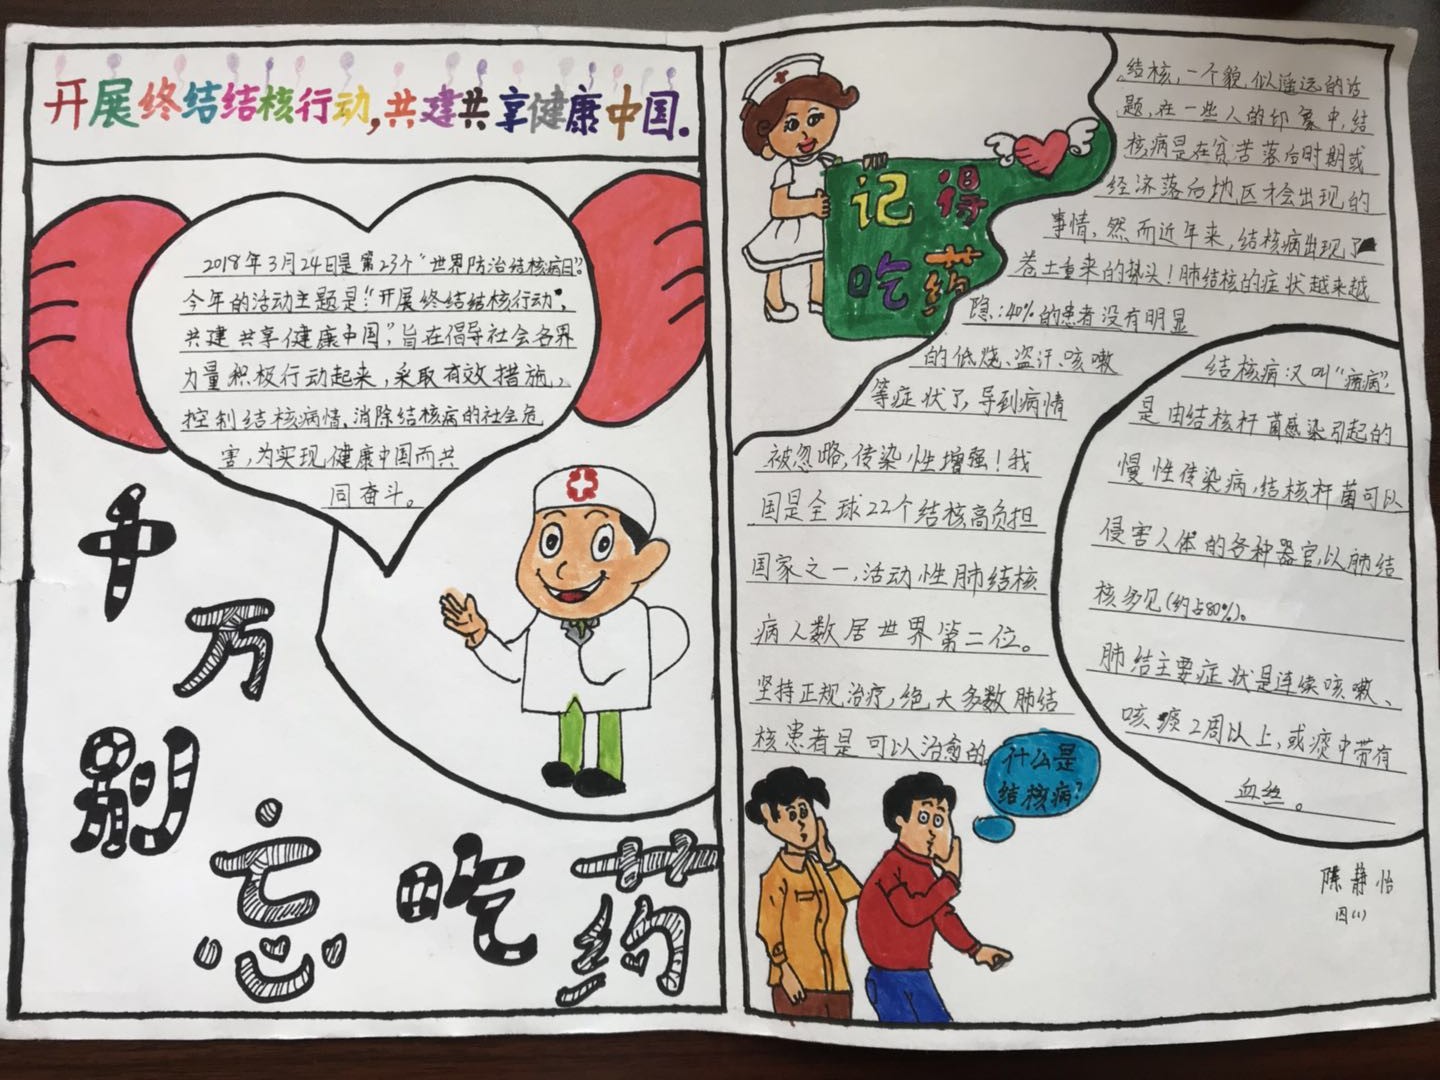 开展终结结核行动,共建共享健康中国.
2018年3月24日是第23个“世界防治结核病日”。
今年的活动主题是:“开展终结结核行动”,
共建共享健康中国”,旨在倡导社会各界
力量积极行动起来,采取有效措施,
控制结核病情,消除结核病的社会危
害,为实现健康中国而共
同奋斗。
千
万
别
忘
吃药
记得
吃药
结核,一个貌似遥远的话
题,在一些人的印象中,结
核病是在贫苦落后时期或
经济落后地区才会出现的
事情,然而近年来,结核病出现了
卷土重来的势头!肺结核的症状越来越
隐:40%的患者没有明显
的低烧、盗汗、咳嗽
等症状了,导到病情
被忽略,传染性增强!我
国是全球22个结核高负担
国家之一,活动性肺结核
病人数居世界第二位。
坚持正规治疗,绝大多数肺结
核患者是可以治愈的。
什么是
结核病?
结核病:又叫“痨病”,
是由结核杆菌感染引起的
慢性传染病,结核杆菌可以
侵害人体的各种器官,以肺结
核多见(约占80%)。
肺结主要症状是连续咳嗽、
咳痰2周以上,或痰中带有
血丝。
陈静怡
四(1)